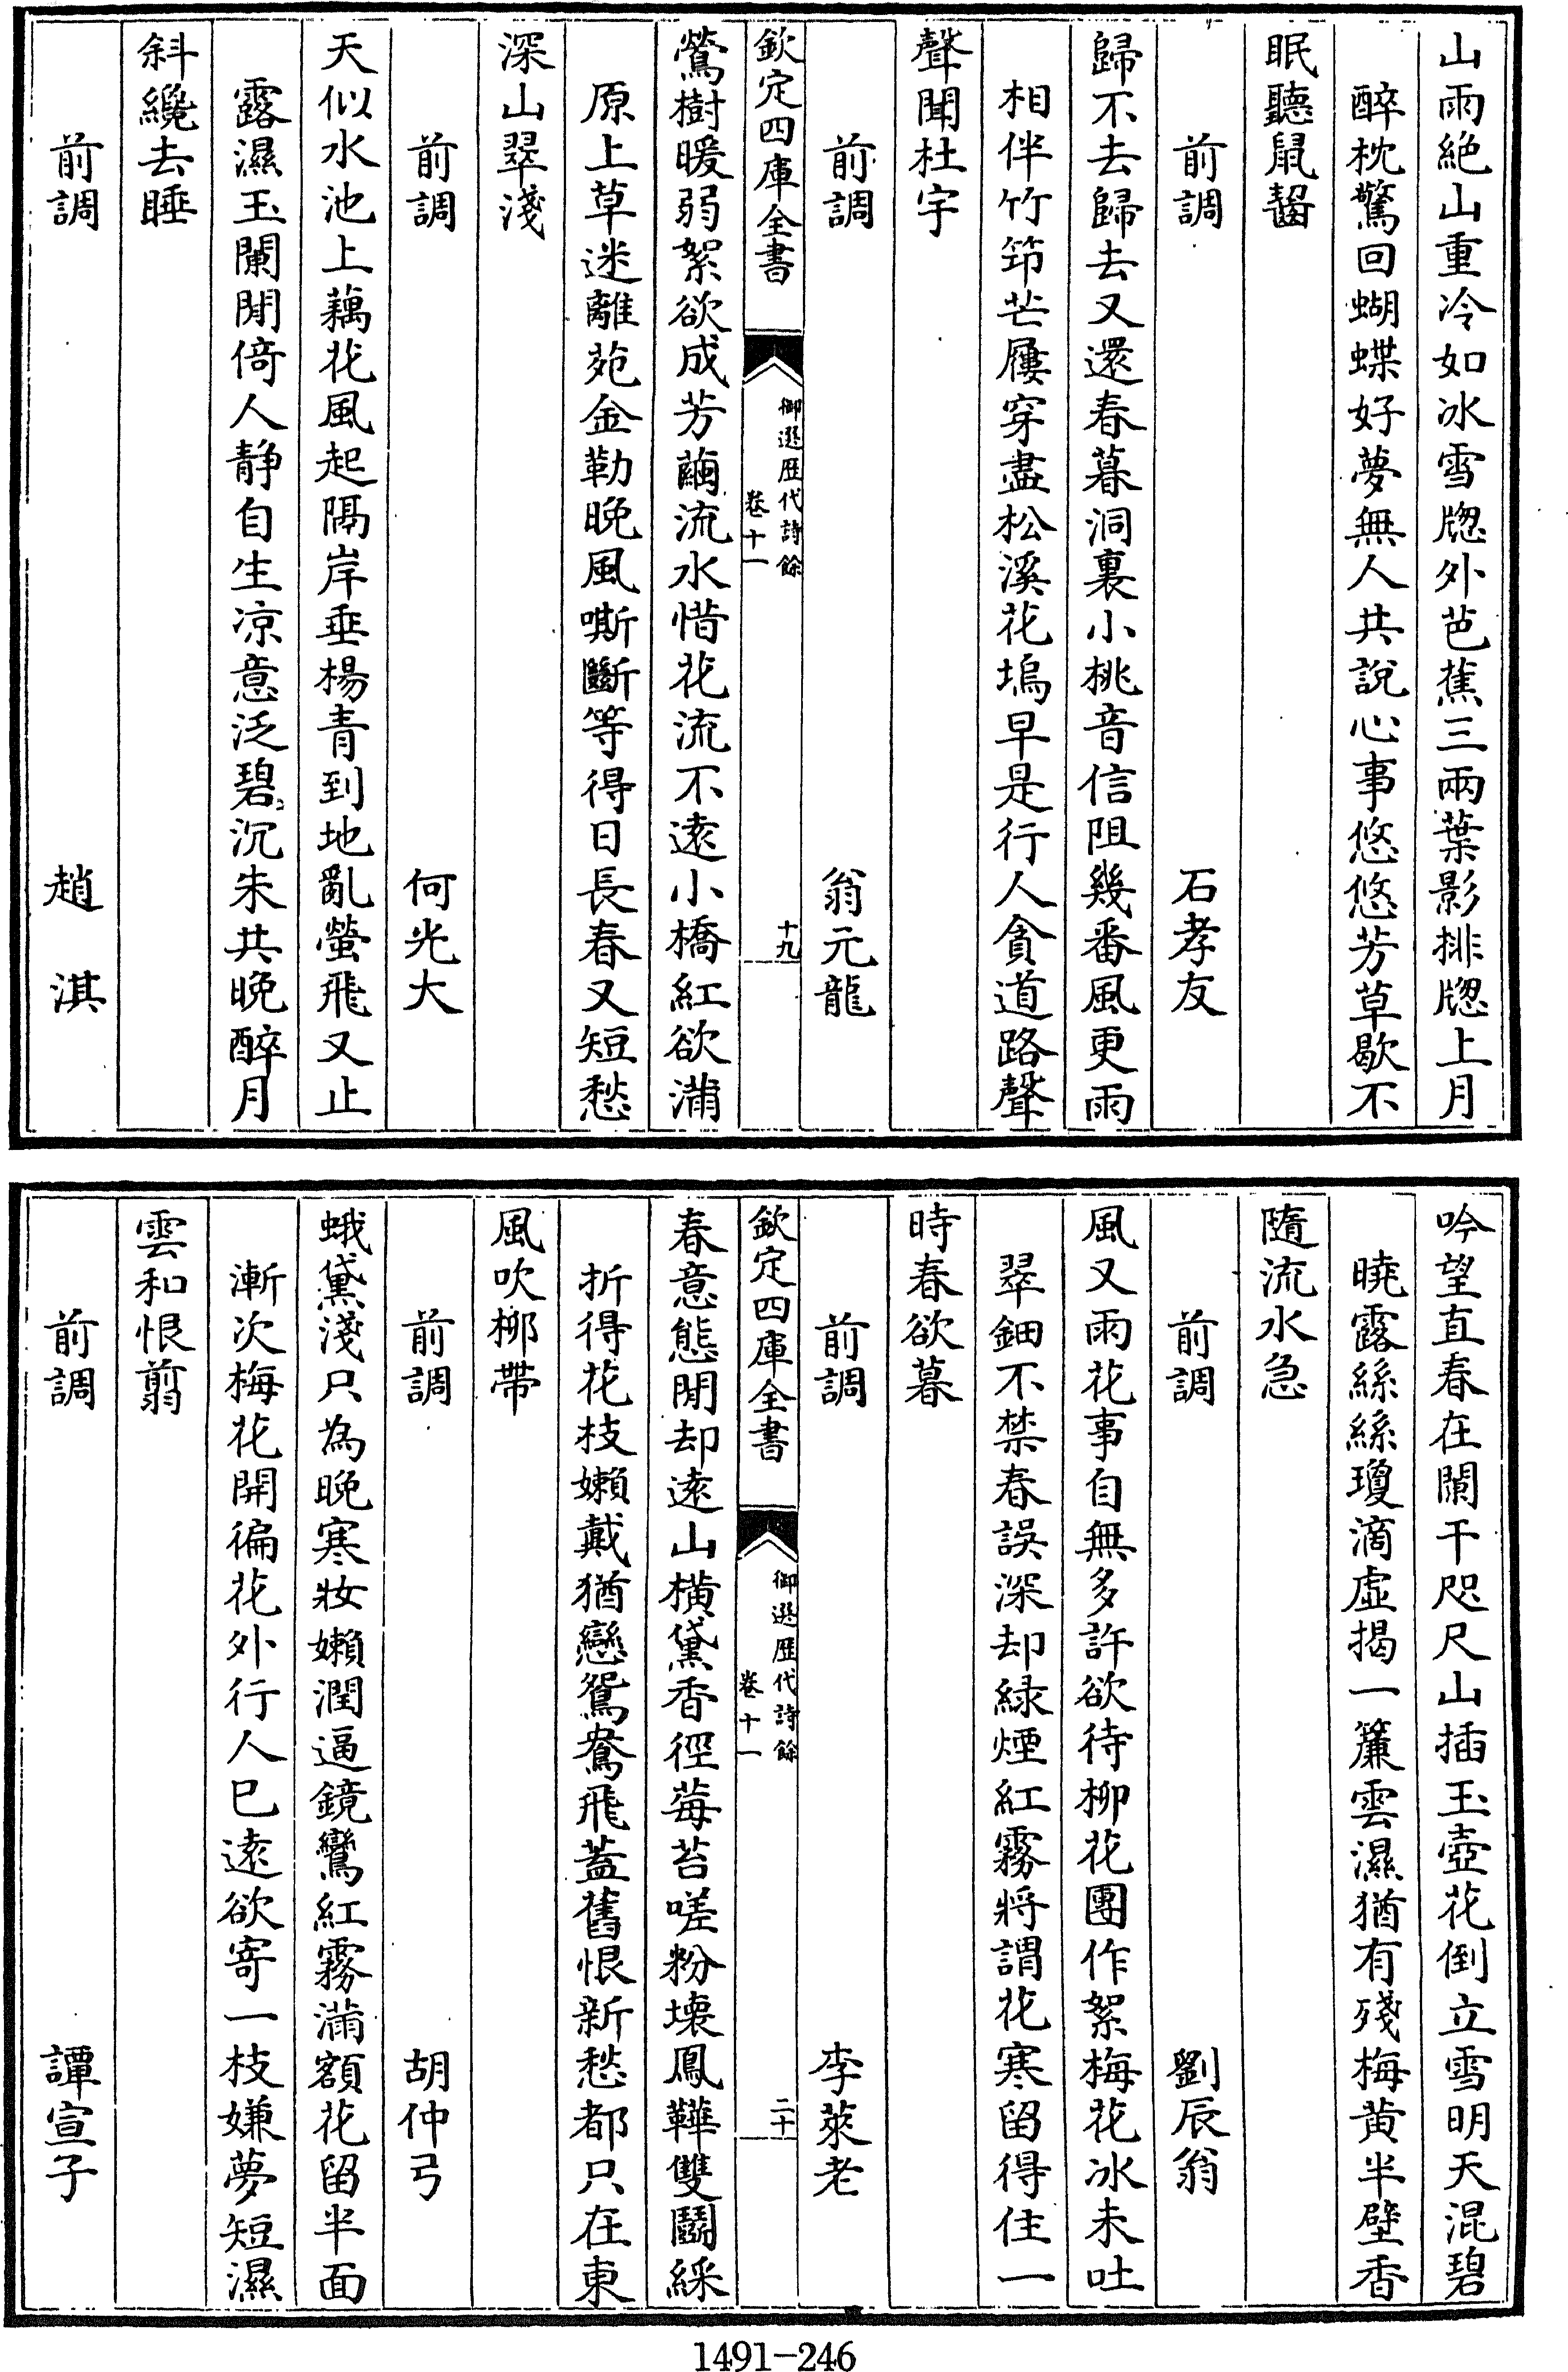 山雨絶山重冷如冰雪牕外芭蕉三兩葉影排牕上月
醉枕驚回蝴蝶好夢無人共說心事悠悠芳草歇不
眠聽鼠齧
前調 石孝友
歸不去歸去又還春暮洞裏小桃音信阻幾番風更雨
相伴竹笻芒屨穿盡松溪花塢早是行人貪道路聲
聲聞杜宇
前調 翁元龍
欽定四庫全書
御選歷代詩餘
卷十一
十九
鶯樹暖弱絮欲成芳繭流水惜花流不遠小橋紅欲滿
原上草迷離苑金勒晚風嘶斷等得日長春又短愁
深山翠淺
前調 何光大
天似水池上藕花風起隔岸垂楊青到地亂螢飛又止
露濕玉闌閒倚人靜自生凉意泛碧沉朱共晚醉月
斜纔去睡
前調 趙淇
吟望直春在闌干咫尺山插玉壺花倒立雪明天混碧
曉露絲絲瓊滴虛揭一簾雲濕猶有殘梅黄半壁香
隨流水急
前調 劉辰翁
風又雨花事自無多許欲待柳花團作絮梅花冰未吐
翠鈿不禁春誤深却緑煙紅霧將謂花寒留得住一
時春欲暮
前調 李萊老
欽定四庫全書
御選歷代詩餘
卷十一
二十
春意態閒却遠山橫黛香徑莓苔嗟粉壊鳳鞾雙鬭綵
折得花枝嬾戴猶戀鴛鴦飛蓋舊恨新愁都只在東
風吹柳帶
前調 胡仲弓
蛾黛淺只為晚寒妝嬾潤逼鏡鸞紅霧滿額花留半面
漸次梅花開徧花外行人已遠欲寄一枝嫌夢短濕
雲和恨翦
前調 譚宣子
1491-246